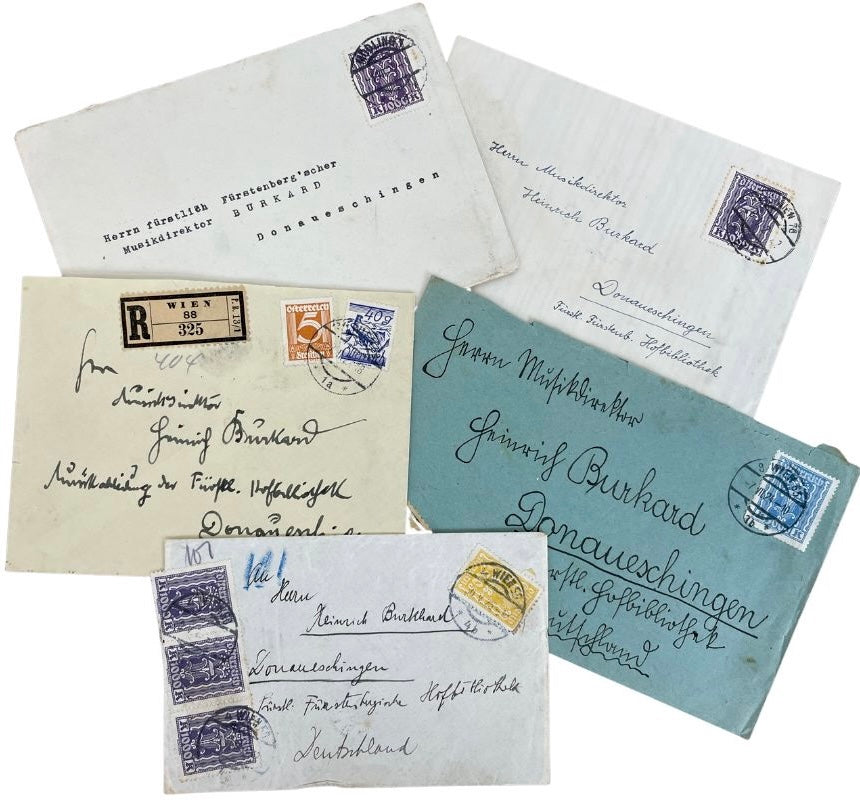 MÖDLING 1
K1000K
Herrn fürstlich Fürstenberg'scher
Musikdirektor BURKARD
Donaueschingen
Herrn Musikdirektor
Heinrich Burkard
Donaueschingen
Fürstl. Fürstenb. Hofbibliothek
WIEN 78
R
WIEN
88
325
404
Österreich
5
Groschen
40g
1a
Herrn
Musikdirektor
Heinrich Burkard
Musikabteilung der Fürstl. Hofbibliothek
Donaueschin
Herrn Musikdirektor
Heinrich Burkard
Donaueschingen
Fürstl. Hofbibliothek
Deutschland
WIEN
101
An
Herrn
Heinrich Burkhard
Donaueschingen
Fürstl. Fürstenbergische Hofbibliothek
Deutschland
K1000K
K1000K
K1000K
WIEN
4b